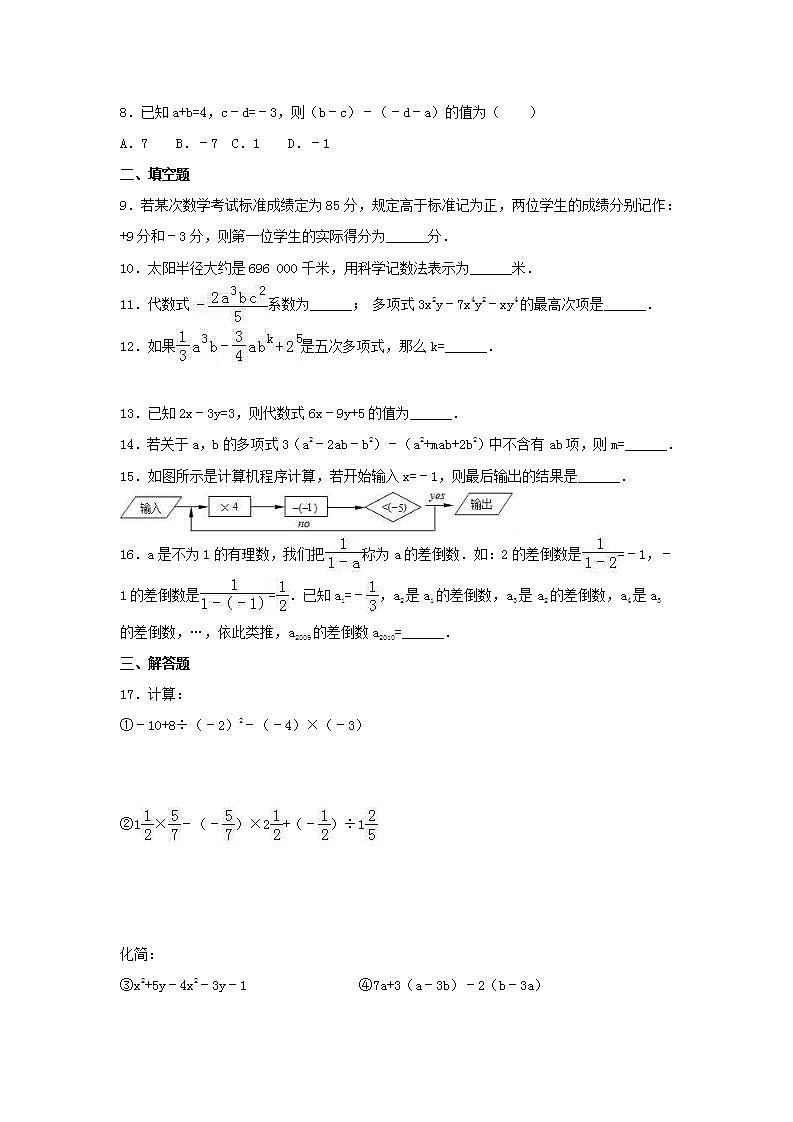 8．已知a+b=4，c﹣d=﹣3，则（b﹣c）﹣（﹣d﹣a）的值为（　　）
A．7　B．﹣7　C．1　D．﹣1
二、填空题
9．若某次数学考试标准成绩定为85分，规定高于标准记为正，两位学生的成绩分别记作：
+9分和﹣3分，则第一位学生的实际得分为______分．
10．太阳半径大约是696 000千米，用科学记数法表示为______米．
11．代数式﹣\frac{2a^3bc^2}{5}系数为______； 多项式3x²y﹣7x⁴y²﹣xy⁴的最高次项是______．
12．如果\frac{1}{3}a³b﹣\frac{3}{4}abᵏ+2⁵是五次多项式，那么k=______．
13．已知2x﹣3y=3，则代数式6x﹣9y+5的值为______．
14．若关于a，b的多项式3（a²﹣2ab﹣b²）﹣（a²+mab+2b²）中不含有ab项，则m=______．
15．如图所示是计算机程序计算，若开始输入x=﹣1，则最后输出的结果是______．
输入 ×4 -(-1) <(-5) yes 输出
no
16．a是不为1的有理数，我们把\frac{1}{1-a}称为a的差倒数．如：2的差倒数是\frac{1}{1-2}=﹣1，﹣
1的差倒数是\frac{1}{1-(-1)}=\frac{1}{2}．已知a₁=﹣\frac{1}{3}，a₂是a₁的差倒数，a₃是a₂的差倒数，a₄是a₃
的差倒数，…，依此类推，a₂₀₀₉的差倒数a₂₀₁₀=______．
三、解答题
17．计算：
①﹣10+8÷（﹣2）²﹣（﹣4）×（﹣3）
②1\frac{1}{2}×\frac{5}{7}﹣（﹣\frac{5}{7}）×2\frac{1}{2}+（﹣\frac{1}{2}）÷1\frac{2}{5}
化简：
③x²+5y﹣4x²﹣3y﹣1　④7a+3（a﹣3b）﹣2（b﹣3a）